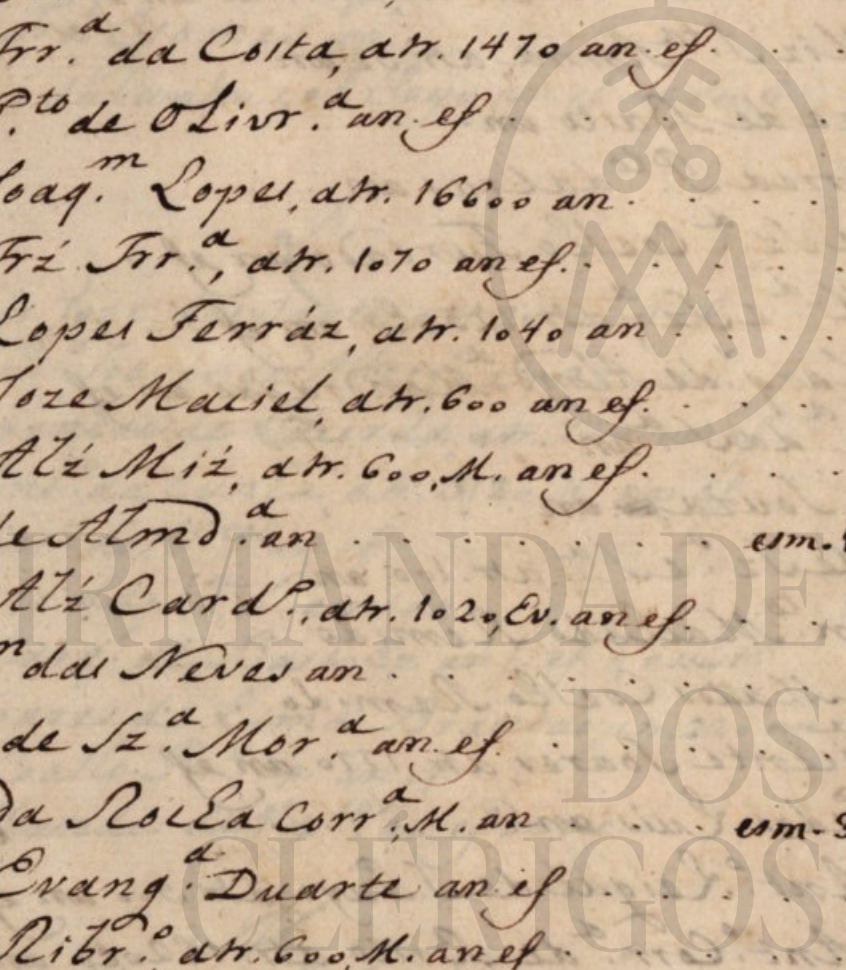 Frr.ª da Costa, atr. 1470 an. ef.
P.to de OLivr.ª an. ef
Joaq.m Lopes, atr. 16600 an
Frź Frr.ª, atr. 1070 an ef.
Lopes Ferráz, atr. 1040 an
Joze Maciel, atr. 600 an ef.
Alź Miź, atr. 600, M. an ef.
de Almd.ª an esm.
Alź Card.º, atr. 1020, Ev. an ef.
m das Neves an
de Sz.ª Mor.ª an. ef.
da Rocha Corr.ª, M. an esm-
Evang.ª Duarte an ef
Ribr.º atr. 600, M. an ef.
IRMANDADE
DOS
CLERIGOS